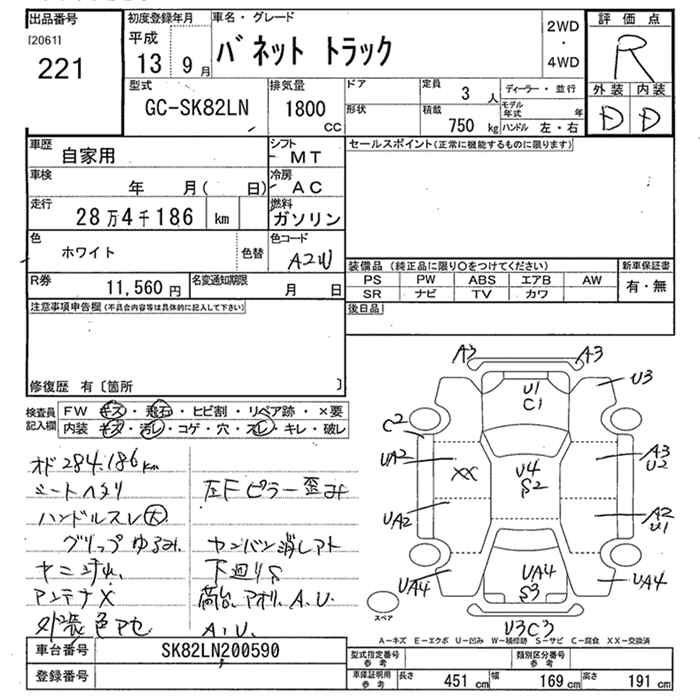 出品番号
[2061]
221
初度登録年月
平成
13 9月
車名・グレード
バネット トラック
2WD
・
4WD
評価点
R
外装 内装
D D
型式
GC-SK82LN
排気量
1800
CC
ドア
形状
定員
3 人
積載
750 kg
ディーラー・並行
モデル年式 年
ハンドル 左・右
車歴
自家用
シフト
MT
セールスポイント(正常に機能するものに限ります)
車検
年 月( 日)
冷房
AC
走行
28万4千186 km
燃料
ガソリン
色
ホワイト
色替
色コード
A2W
装備品 (純正品に限り○をつけてください)
PS PW ABS エアB AW
SR ナビ TV カワ
新車保証書
有・無
R券
11,560 円
名変通知期限
月 日
後日品
注意事項申告欄(不具合内容等は具体的に記入して下さい)
修復歴 有〔箇所 〕
検査員記入欄
FW キズ・飛石・ヒビ割・リペア跡・×要
内装 キズ・汚レ・コゲ・穴・スレ・キレ・破レ
オド 284,186km
シートヘタリ
ハンドルスレ大
グリップゆるみ
ヤニ汚れ
アンテナX
外装色アセ
左Fピラー歪み
カンバン消しアト
下廻りS
荷台、アオリ、A.U.
A.U.
A3 A3
U1
C1
U3
C2
UA2
XX
U4
S2
A3
U2
UA2
A2
U1
UA4
UA4
S3
UA4
U3C3
スペア
A－キズ E－エクボ U－凹み W－補修跡 S－サビ C－腐食 XX－交換済
車台番号
SK82LN200590
登録番号
型式指定番号
参考
類別区分番号
参考
車庫証明用
参考
長さ 451 cm
幅 169 cm
高さ 191 cm